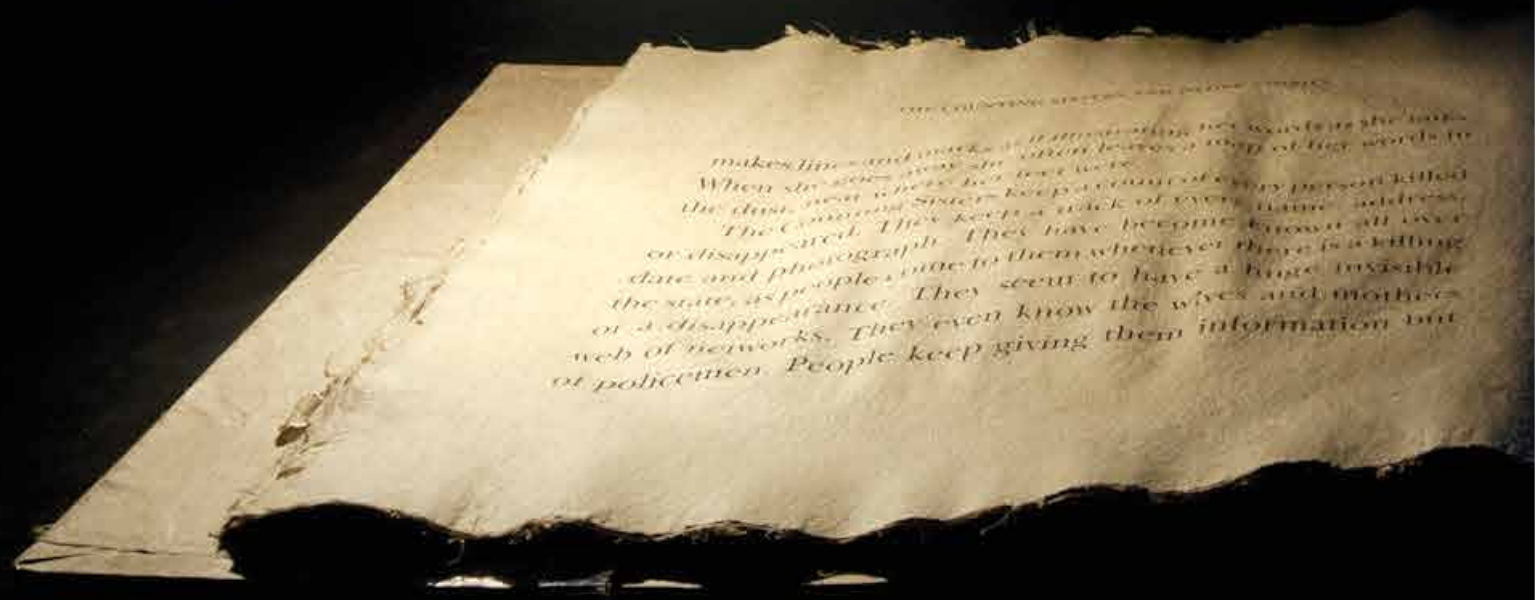 THE COUNTING SISTERS AND OTHER STORIES
makes lines and marks as if illustrating her words as she talks.
When she goes away she often leaves a map of her words in
the dust, near where her feet were.
The Counting Sisters keep a count of every person killed
or disappeared. They keep a track of every name, address,
date and photograph. They have become known all over
the state, as people come to them whenever there is a killing
or a disappearance. They seem to have a huge invisible
web of networks. They even know the wives and mothers
of policemen. People keep giving them information but